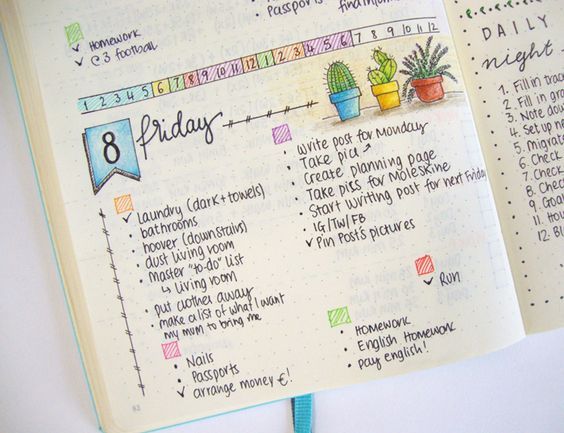 Passports
find inform
Homework
football
1 2 3 4 5 6 7 8 9 10 11 12 1 2 3 4 5 6 7 8 9 10 11 12
8 friday
laundry (dark + towels)
bathrooms
hoover (downstairs)
dust living room
master "to-do" list
↳ living room
put clothes away
make a list of what I want
my mum to bring me
Nails
Passports
arrange money €!
Write post for Monday
Take pics
Create planning page
Take pics for Moleskine
Start writing post for next Friday
IG/TW/FB
Pin Post's pictures
Run
Homework
English Homework
pay english!
DAILY
night
1. Fill in track
2. Fill in gra
3. Note down
4. Set up ne
5. Migrat
6. Check
7. Check
8. Check
9. Goal